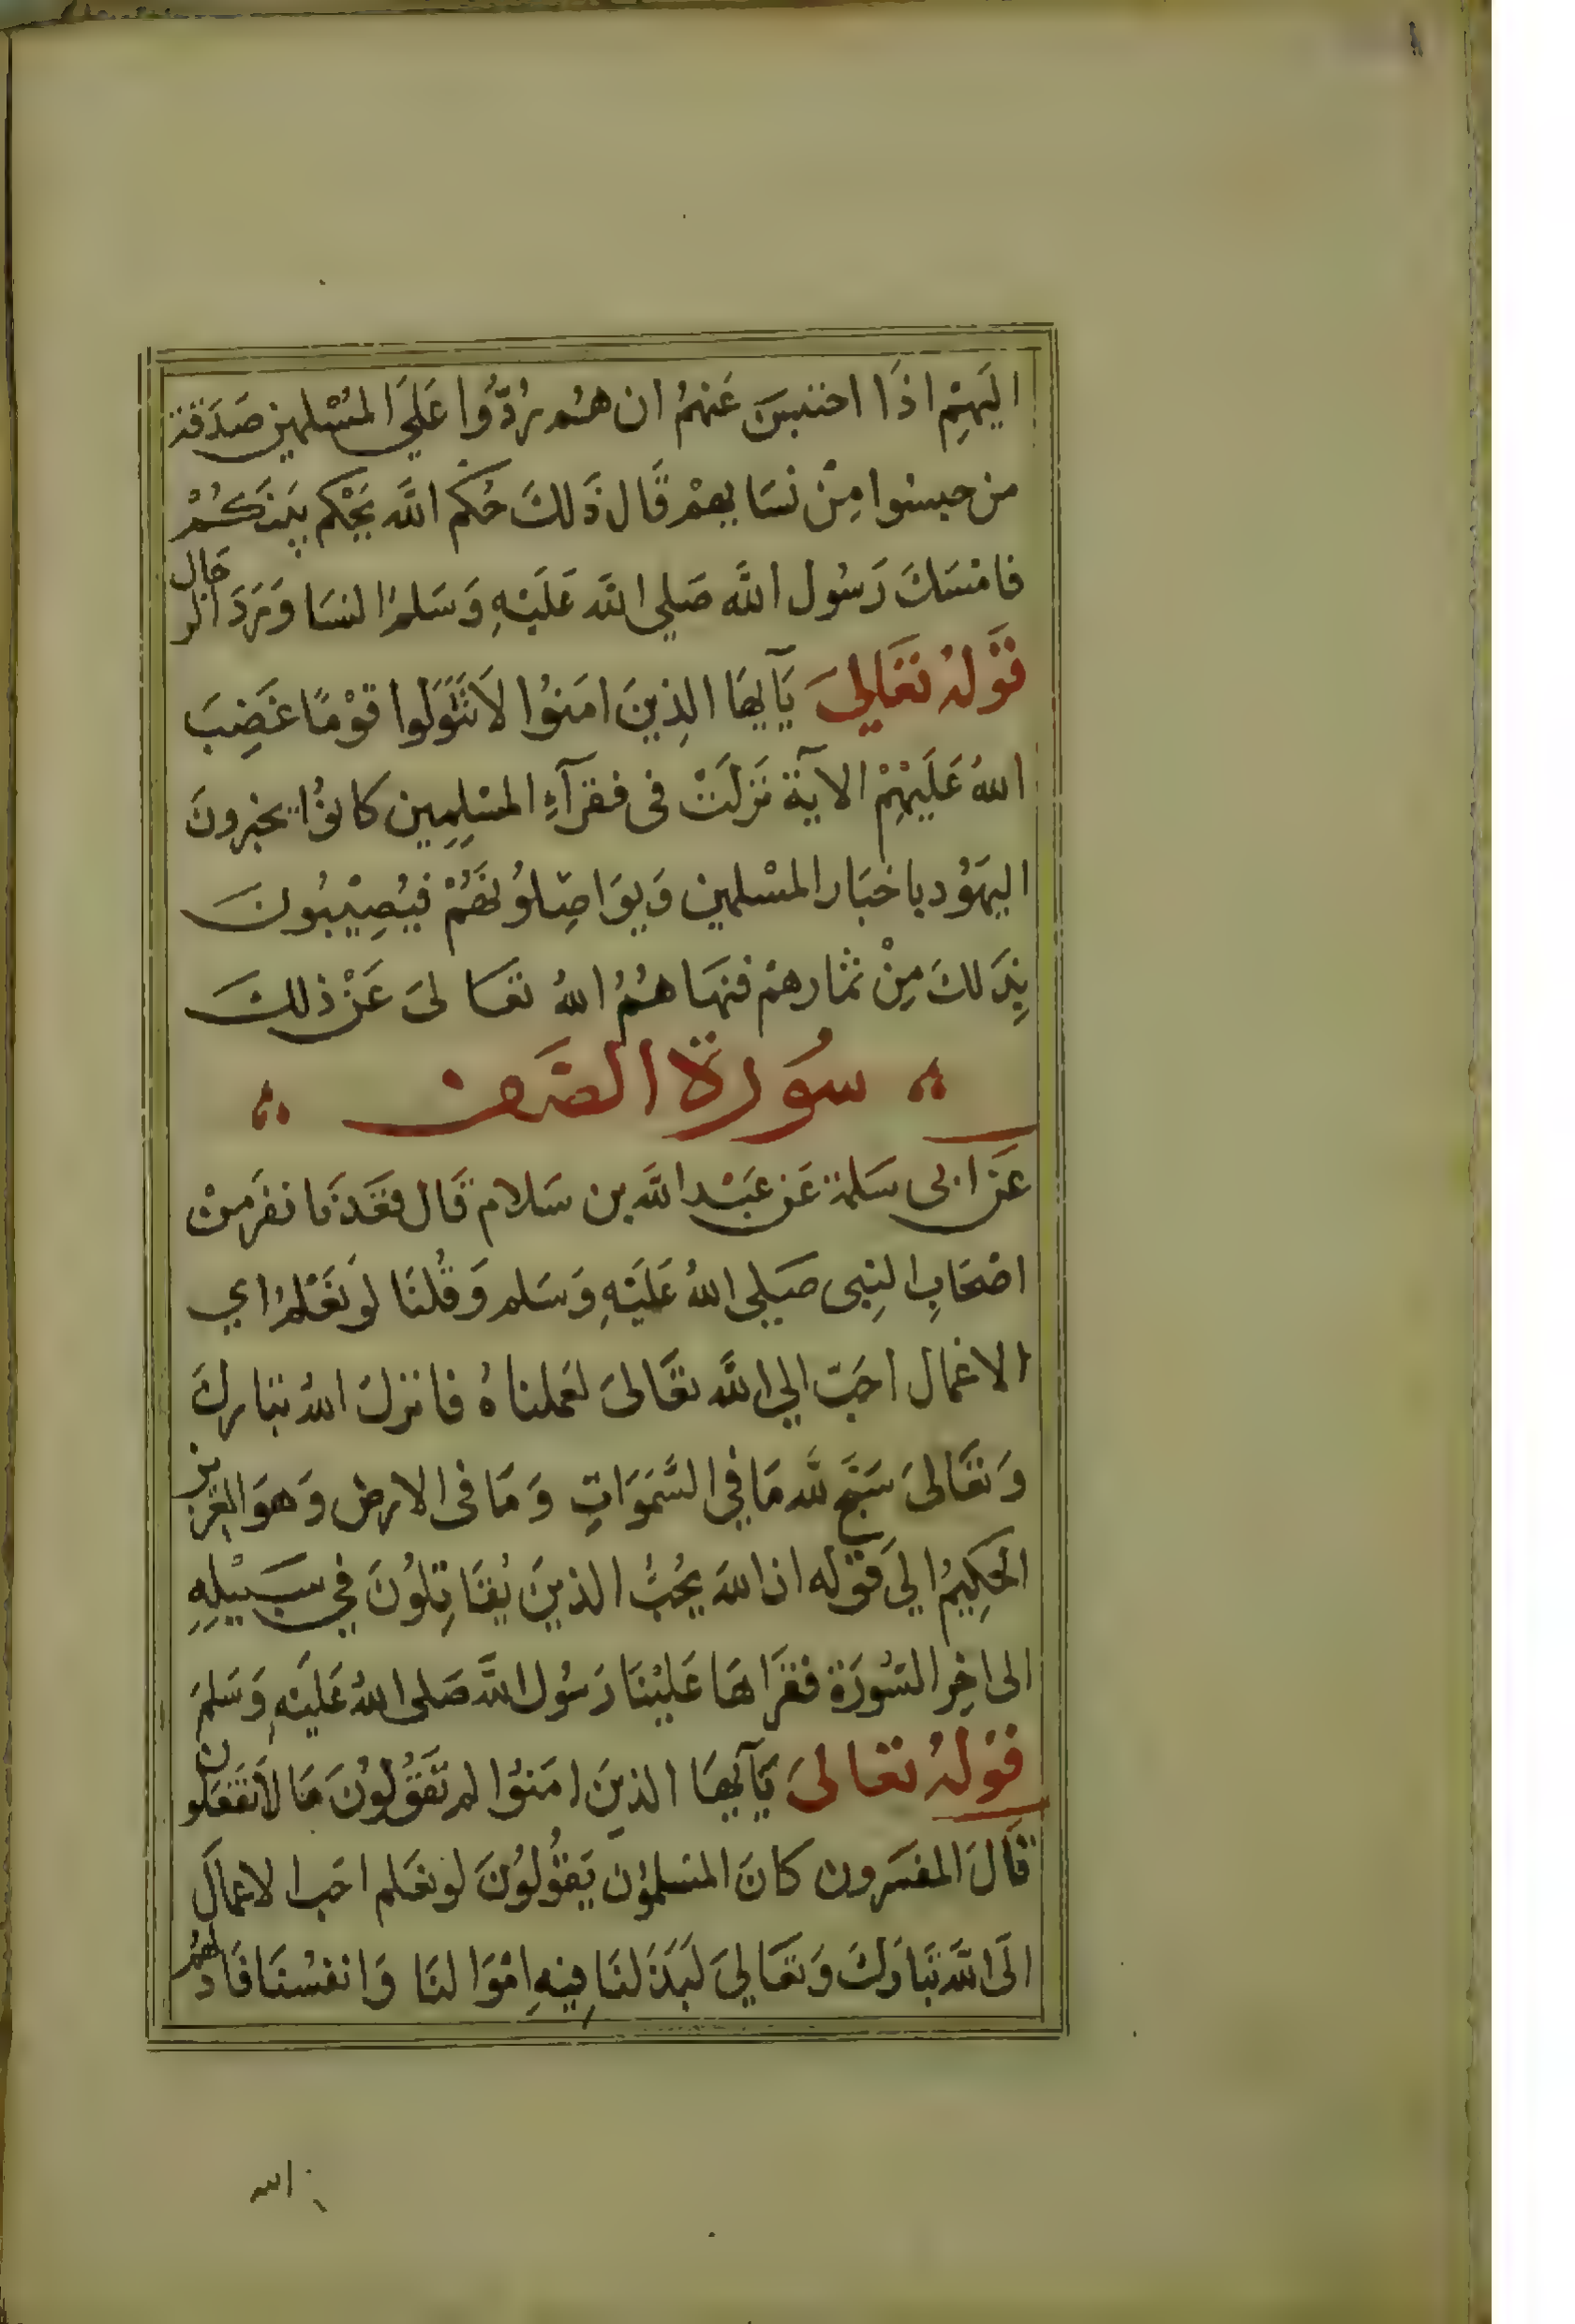 اليَهِمْ اذَا احتبسن عَنهُمُ ان هُم رُدُّوا عَلَي المُسْلمين صَدَقة
من حبسوا مِنْ نسَايهمْ قَال ذَلكَ حُكم اللَّه يَحْكم بَينكُمْ
فامْسَكَ رَسُول اللَّه صَلي اللَّه عَليْهِ وَسَلمُ النسَا وَرَدَ الرجال
قَوْلهُ تعَاليَ يَآيهَا الذِينَ امَنوُا لاَ تتَوَلَوا قوْمًا غَضِبَ
اللهُ عَلَيْهِمْ الايَة نَزلَتْ في فقرَآءِ المسْلِمِين كانوُا يخبرونَ
اليهَوُد باخبَار المسْلمين وَيوَاصِلوُنهَمُ فيُصِيْبُونَ
بِذَلكَ مِنْ ثمارهمْ فنهَاهُمُ اللهُ تعَالىَ عَنْ ذلكَ
سُوَرة الصَف
عَن ابى سَلمة عَن عَبْد اللَّه بن سَلام قَال قعَدنَا نفرَ مِنْ
اصْحَابِ النِبى صَلي اللهُ عَليْهِ وَسَلم وَقُلنَا لوَ نعْلمُ اي
الاعْمال احَبّ الي اللَّه تعَالىَ لعَملناهُ فانزلَ اللهُ تبَاركَ
وَتعَالىَ سَبَّح للَّه مَا في السَّمَوَاتِ وَمَا فى الارض وَهوَ العَزيز
الحكِيمُ اليَ قوْله ان اللهَ يحُبُّ الذينَ يُقاتِلوُنَ في سَبيْلِهِ
الى اخِر السُّورَة فقرَاهَا عَليْنَا رَسُول اللَّه صَلى اللهُ عَليْهِ وَسَلمَ
قوْلهُ تعَالىَ يَآيهَا الذينَ امَنوُا لم تَقوُلوُنَ مَا لاَ تفعَلون
قَالَ المفسَرون كانَ المسَلموُن يَقوُلوُنَ لو نعَلم احَب الاعمالَ
الَى اللَّه تبَارَكَ وَتعَاليَ لبَذلنَا فيهِ امْوَالنَا وَانفسُنَا فَادلهُم
الله